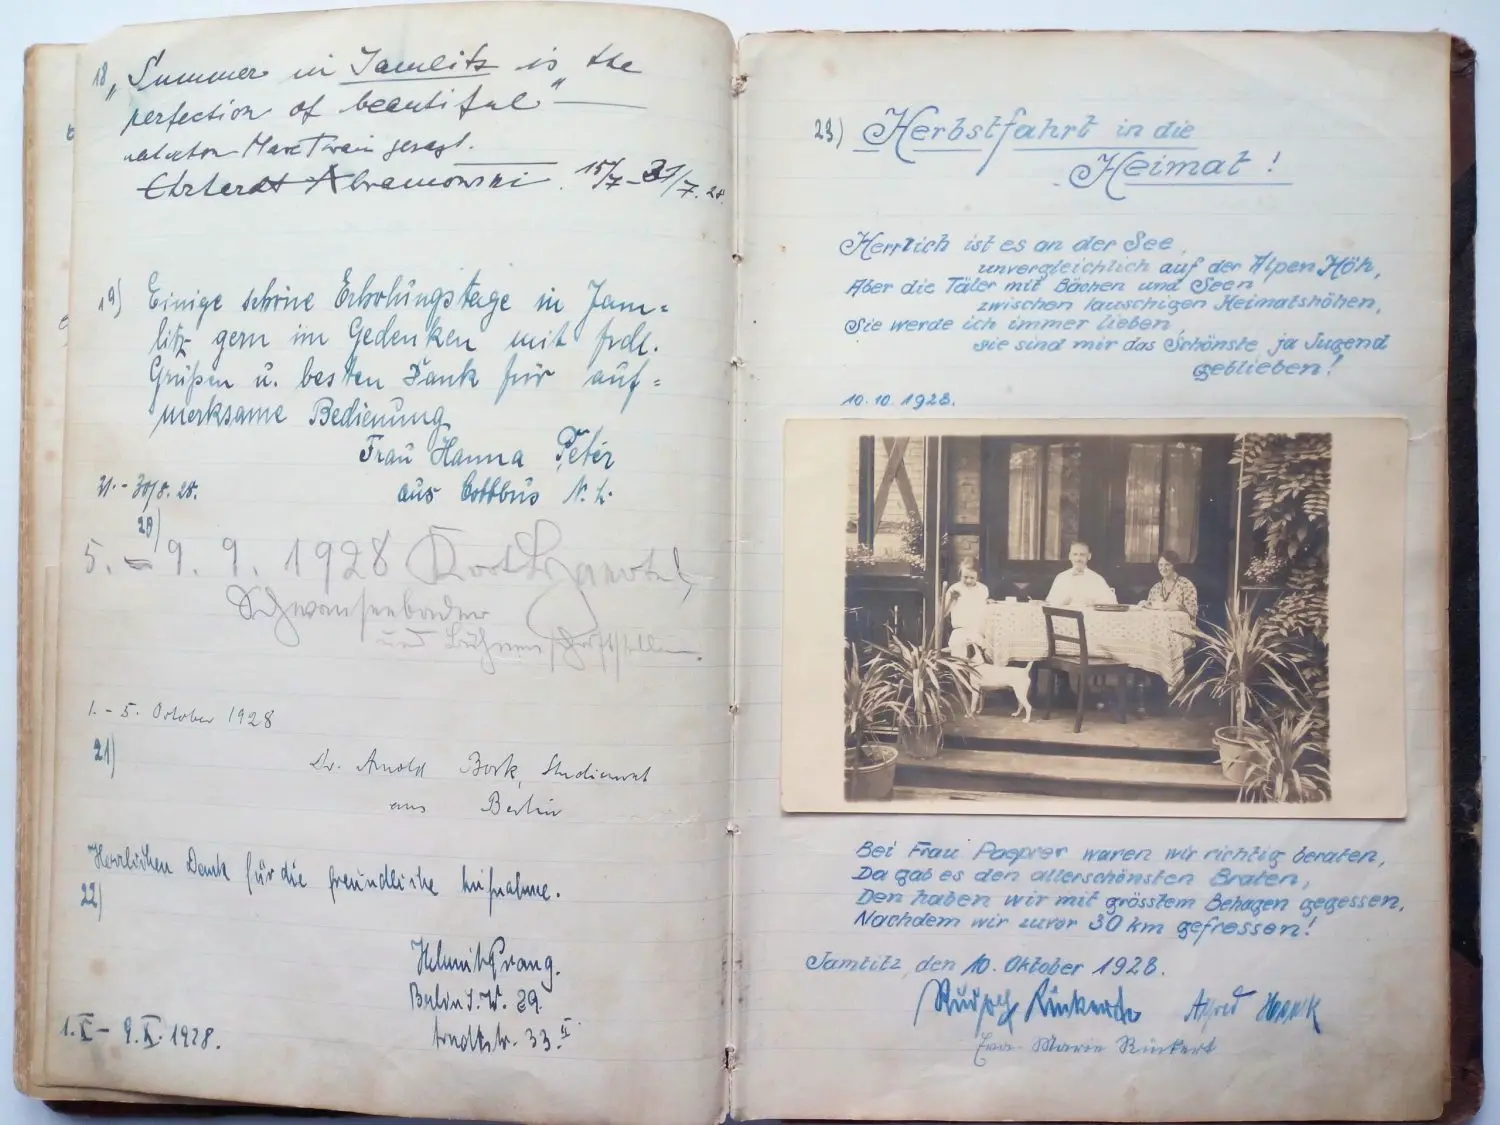 18 „Summer in Jamlitz is the
perfection of beautiful"
Mark Twain gesagt.
Abramowski. 15/7-31/7. 28.
19) Einige schöne Erholungstage in Jam=
litz gern im Gedenken mit frdl.
Grüßen u. besten Dank für auf=
merksame Bedienung
Frau Hanna Peter
31.-30/8. 28. aus Cottbus N. L.
20)
5. - 9. 9. 1928
und Bühnenschriftsteller.
1. - 5. October 1928
21)
Dr. Arnold Bork, Studienrat
aus Berlin
Herzlichen Dank für die freundliche Aufnahme.
22)
Helmut Prang.
Berlin S.W. 29.
Arndtstr. 33.II
1.X - 9.X. 1928.
23) Herbstfahrt in die
Heimat!
Herrlich ist es an der See,
unvergleichlich auf der Alpen Höh,
Aber die Täler mit Bächen und Seen
zwischen lauschigen Heimatshöhen,
Sie werde ich immer lieben,
sie sind mir das Schönste, ja Jugend
geblieben!
10.10.1928.
Bei Frau Paeprer waren wir richtig beraten,
Da gab es den allerschönsten Braten,
Den haben wir mit grösstem Behagen gegessen,
Nachdem wir zuvor 30 km gefressen!
Jamlitz, den 10. Oktober 1928.
Rudolf Rückert Alfred Hank
Eva-Marie Rückert